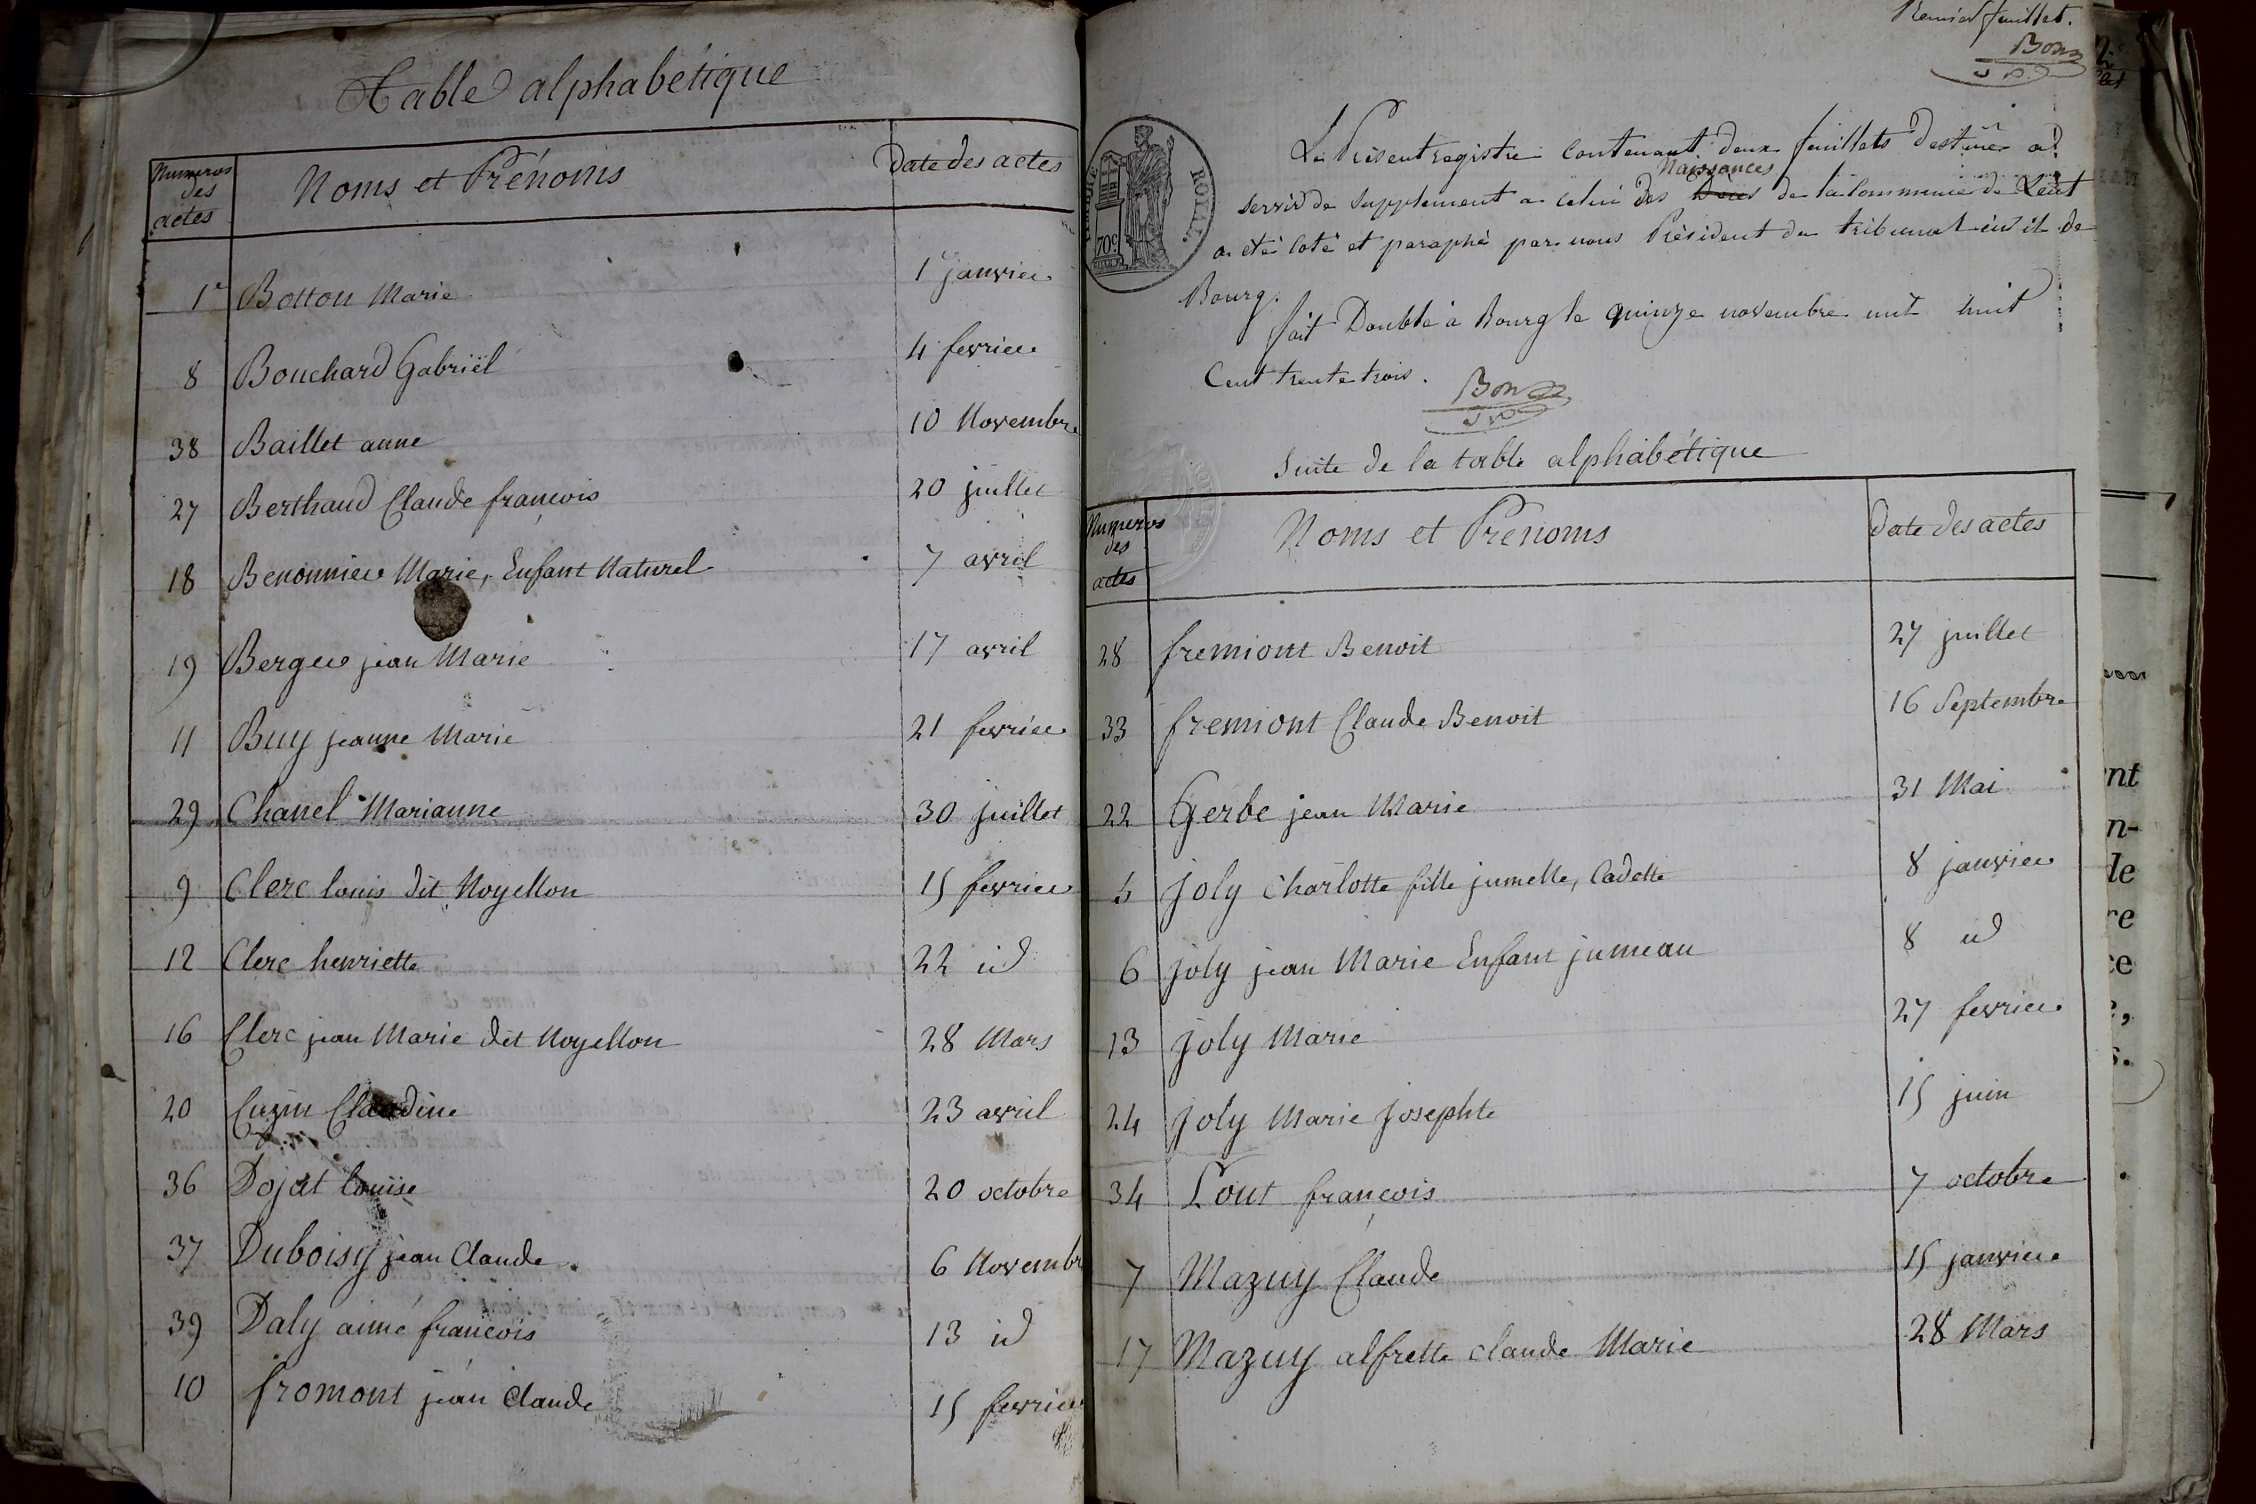 Table alphabétique
Numeros des actes Noms et Prénoms Date des actes
1er Botton Marie 1er janvier
8 Bouchard Gabriël 4 fevrier
38 Baillet anne 10 Novembre
27 Berthaud Claude françois 20 juillet
18 Benonnier Marie, Enfant Naturel 7 avril
19 Berger jean Marie 17 avril
11 Buy jeanne Marie 21 fevrier
29 Chanel Marianne 30 juillet
9 Clerc louis dit Noyellon 15 fevrier
12 Clerc henriette 22 id
16 Clerc jean Marie dit Noyellon 28 Mars
20 Cuzin Claudine 23 avril
36 Dojat louise 20 octobre
37 Duboisy jean Claude 6 Novembr
39 Daly aimé françois 13 id
10 fromont jean Claude 15 fevrier
Premier feuillet.
Bon
ROYAL.
70c
Le Présent registre contenant deux feuillets destiné a
Naissances
servir de supplement a celui des Décès de la Commune de
a été coté et paraphé par nous Président du tribunal civil de
Bourg.
fait Double à Bourg le quinze novembre mil huit
Cent trente trois.
Bon
Suite de la table alphabétique
Numeros des actes Noms et Prenoms Date des actes
28 fremiont Benoit 27 juillet
33 fremiont Claude Benoit 16 Septembre
22 Gerbe jean Marie 31 Mai
5 joly Charlotte fille jumelle, Cadette 8 janvier
6 joly jean Marie Enfant jumeau 8 id
13 joly Marie 27 fevrier
24 joly Marie Josephte 15 juin
34 Lout françois 7 octobre
7 Mazuy Claude 15 janvier
17 Mazuy alfrette claude Marie 28 Mars
nt
n-
le
re
ce